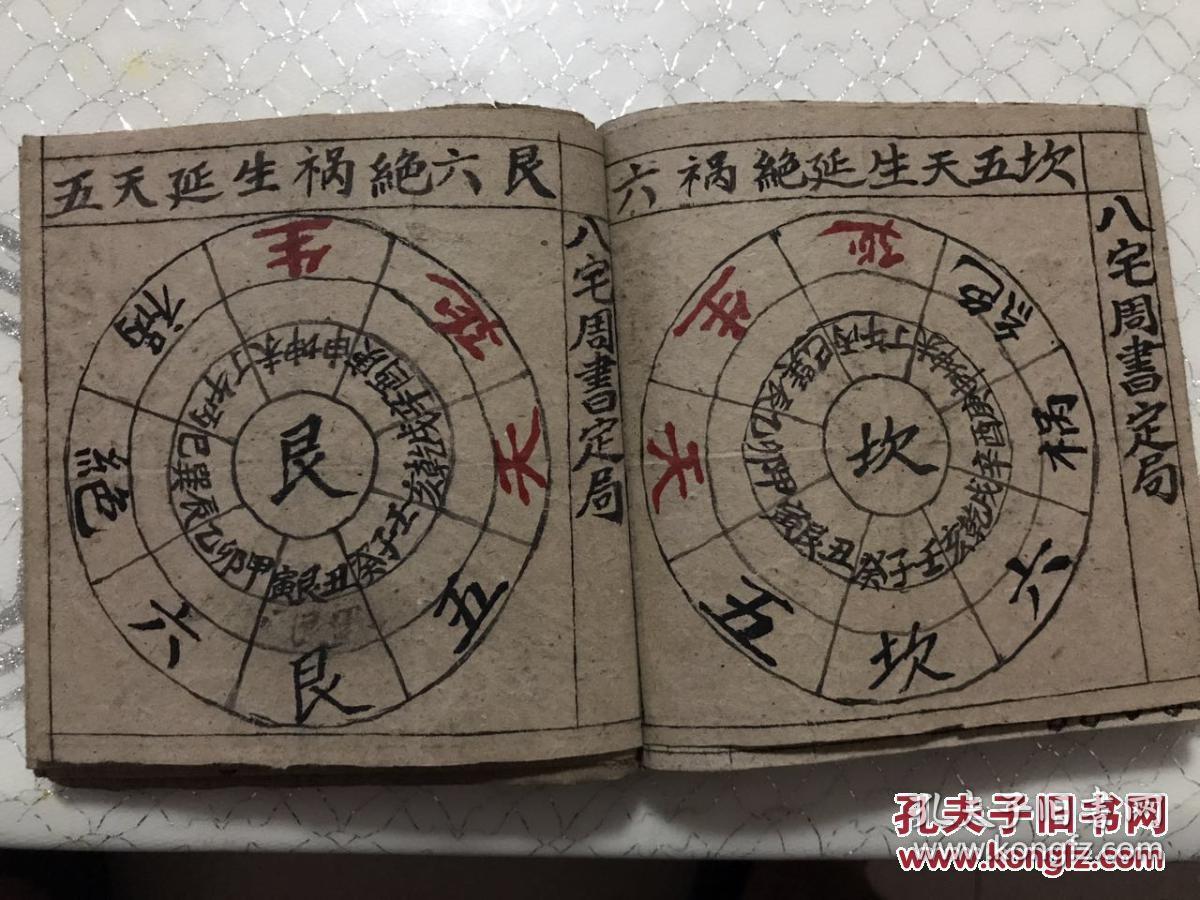 坎五天生延絶祸六
八宅周書定局
坎
五
天
生
延
絶
祸
六
壬子癸
丑艮寅
甲卯乙
辰巽巳
丙午丁
未坤申
庚酉辛
戌乾亥
坎
艮六絶祸生延天五
八宅周書定局
艮
六
絶
祸
生
延
天
五
丑艮寅
甲卯乙
辰巽巳
丙午丁
未坤申
庚酉辛
戌乾亥
壬子癸
艮
孔夫子旧书网
www.kongfz.com